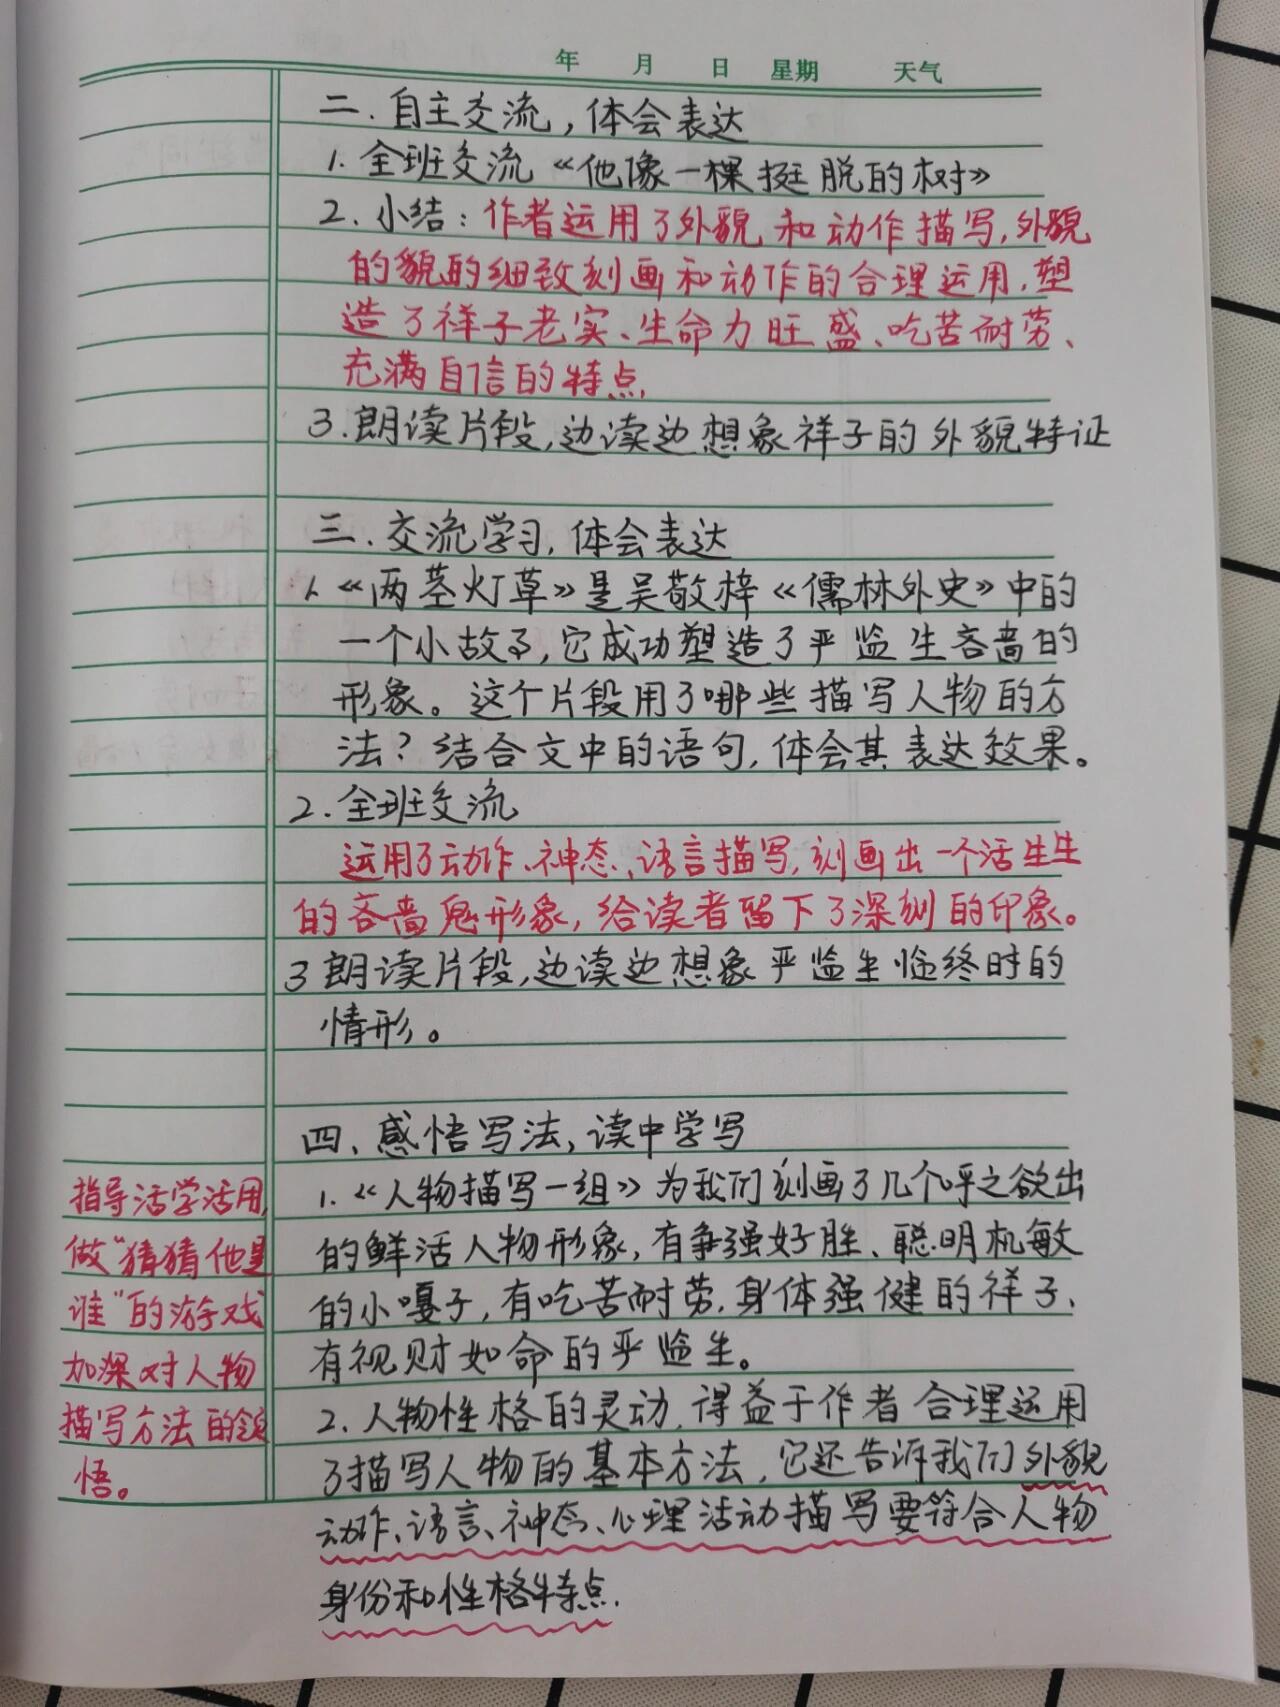 年 月 日 星期 天气
二.自主交流,体会表达
1.全班交流《他像一棵挺脱的树》
2.小结:作者运用了外貌和动作描写,外貌
的貌的细致刻画和动作的合理运用,塑
造了祥子老实、生命力旺盛、吃苦耐劳、
充满自信的特点.
3.朗读片段,边读边想象祥子的外貌特证
三.交流学习,体会表达
1.《两茎灯草》是吴敬梓《儒林外史》中的
一个小故事,它成功塑造了严监生吝啬的
形象。这个片段用了哪些描写人物的方
法?结合文中的语句,体会其表达效果。
2.全班交流
运用了动作、神态、语言描写,刻画出一个活生生
的吝啬鬼形象,给读者留下了深刻的印象。
3朗读片段,边读边想象严监生临终时的
情形。
四、感悟写法,读中学写
1.《人物描写一组》为我们刻画了几个呼之欲出
的鲜活人物形象,有争强好胜、聪明机敏
的小嘎子,有吃苦耐劳.身体强健的祥子、
有视财如命的严监生。
2.人物性格的灵动,得益于作者合理运用
了描写人物的基本方法,它还告诉我们外貌
动作、语言、神态、心理活动描写要符合人物
身份和性格特点.
指导活学活用,
做"猜猜他是
谁"的游戏
加深对人物
描写方法的领
悟。